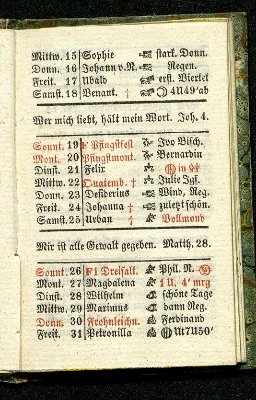 Mittw. 15 Sophie stark. Donn.
Donn. 16 Johann v.N. Regen.
Freit. 17 Ubald erst. Viertel
Samst. 18 Venant. † 4U49'ab
Wer mich liebt, hält mein Wort. Joh. 4.
Sonnt. 19 F Pfingstfest Ivo Bisch.
Mont. 20 Pfingstmont. Bernardin
Dinst. 21 Felix in
Mittw. 22 Quatemb. † Julie Jgf.
Donn. 23 Desiderius Wind, Reg.
Freit. 24 Johanna † zuletzt schön.
Samst. 25 Urban † Vollmond
Mir ist alle Gewalt gegeben. Matth. 28.
Sonnt. 26 F 1 Dreifalt. Phil. N.
Mont. 27 Magdalena 1 U. 4' mrg
Dinst. 28 Wilhelm schöne Tage
Mittw. 29 Maximus dann Reg.
Donn. 30 Frohnleichn. Ferdinand
Freit. 31 Petronilla U7U50'